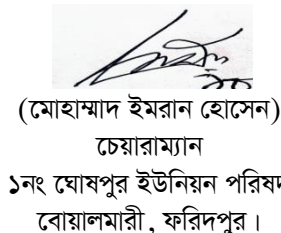 (মোহাম্মাদ ইমরান হোসেন)
চেয়ারাম্যান
১নং ঘোষপুর ইউনিয়ন পরিষদ
বোয়ালমারী, ফরিদপুর।